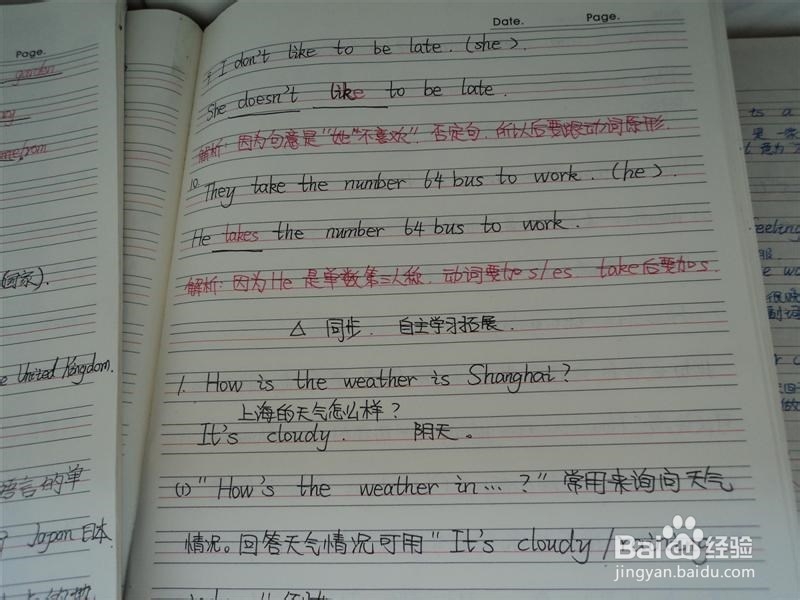 Date. Page.
I don't like to be late. (she).
She doesn't like to be late.
解析：因为句意是“她“不喜欢”，否定句，所以后要跟动词原形.
10. They take the number 64 bus to work. (he).
He takes the number 64 bus to work.
解析：因为He 是单数第三人称，动词要加s/es. take后要加s.
△ 同步. 自主学习拓展.
1. How is the weather is Shanghai?
上海的天气怎么样?
It's cloudy. 阴天。
(1) "How's the weather in…?" 常用来询问天气
情况。回答天气情况可用"It's cloudy /
Page.
garden
from
(国家).
United Kingdom.
语言的单
Japan 日本
ts a
是 一
feeling
服
Baidu经验
jingyan.baidu.com